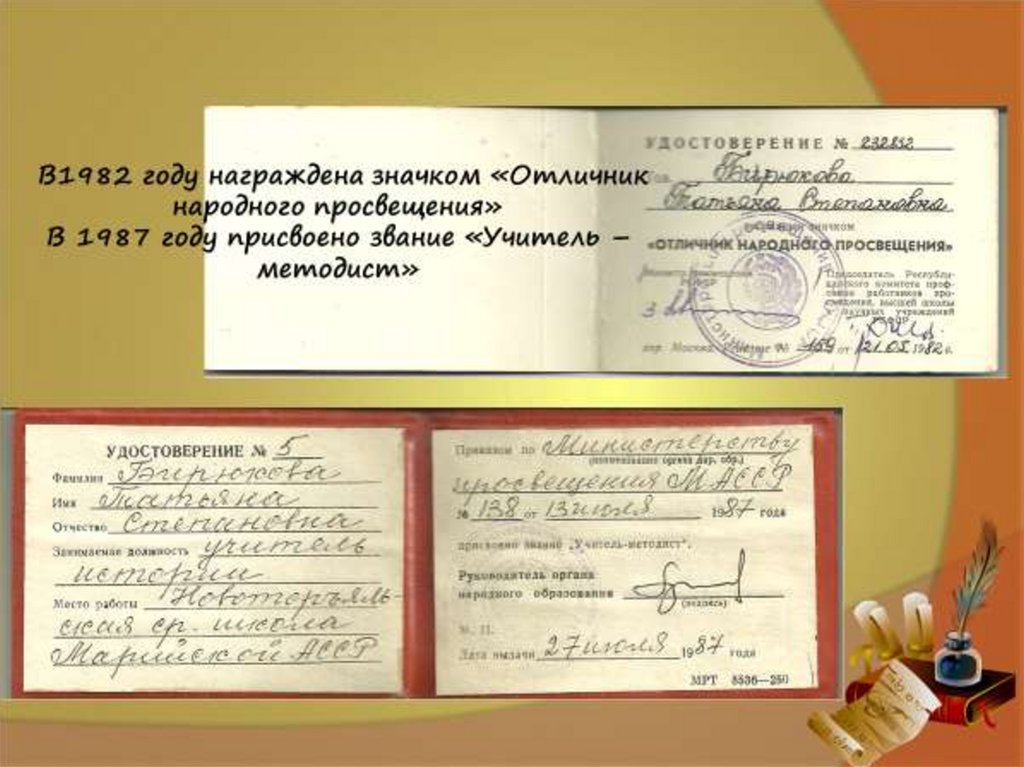 В1982 году награждена значком «Отличник
народного просвещения»
В 1987 году присвоено звание «Учитель –
методист»
УДОСТОВЕРЕНИЕ № 232852
Тов. Бирюкова
Татьяна Степановна
значком
«ОТЛИЧНИК НАРОДНОГО ПРОСВЕЩЕНИЯ»
Министр просвещения
РСФСР
Председатель Республи-
канского комитета проф-
союза работников про-
свещения, высшей школы
и научных учреждений
РСФСР
гор. Москва. Решение № 159 от 21.05.1982 г.
УДОСТОВЕРЕНИЕ № 5
Фамилия Бирюкова
Имя Татьяна
Отчество Степановна
Занимаемая должность учитель
истории
Место работы Новоторъяль-
ская ср. школа
Марийской АССР
Приказом по Министерству
(наименование органа нар. обр.)
просвещения МАССР
№ 138 от 13 июля 1987 года
присвоено звание „Учитель-методист".
Руководитель органа
народного образования
(подпись)
М. П.
Дата выдачи 27 июля 1987 года
МРТ 8536—250